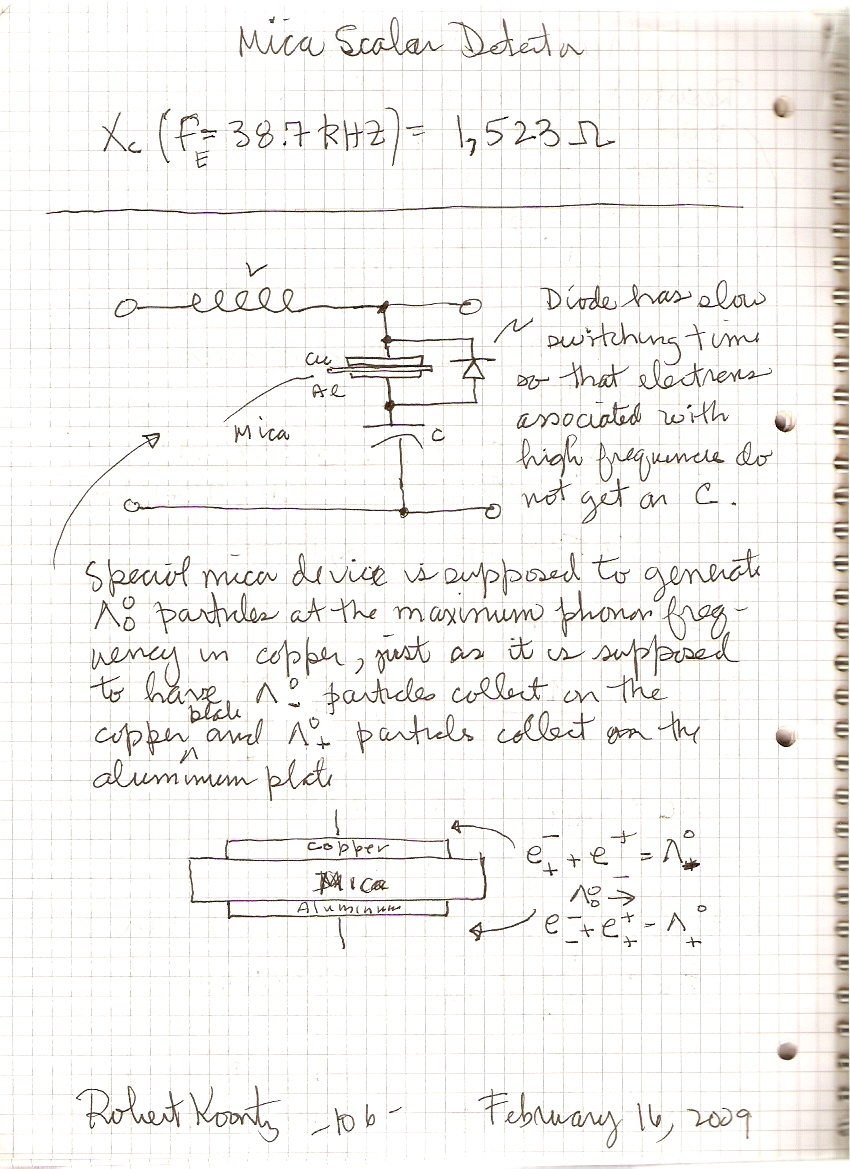 Mica Scalar Detector
Xc (fE = 38.7 kHz) = 1,523 Ω
Diode has slow
switching time
so that electrons
associated with
high frequencies do
not get on C.
Cu
Al
Mica
C
Special mica device is supposed to generate
Λ⁰₀ particles at the maximum phonon freq-
uency in copper, just as it is supposed
to have Λ⁰₋ particles collect on the
copper plate and Λ⁰₊ particles collect on the
aluminum plate
Copper
Mica
Aluminum
Λ⁰₀ →
Robert Koontz -106- February 16, 2009